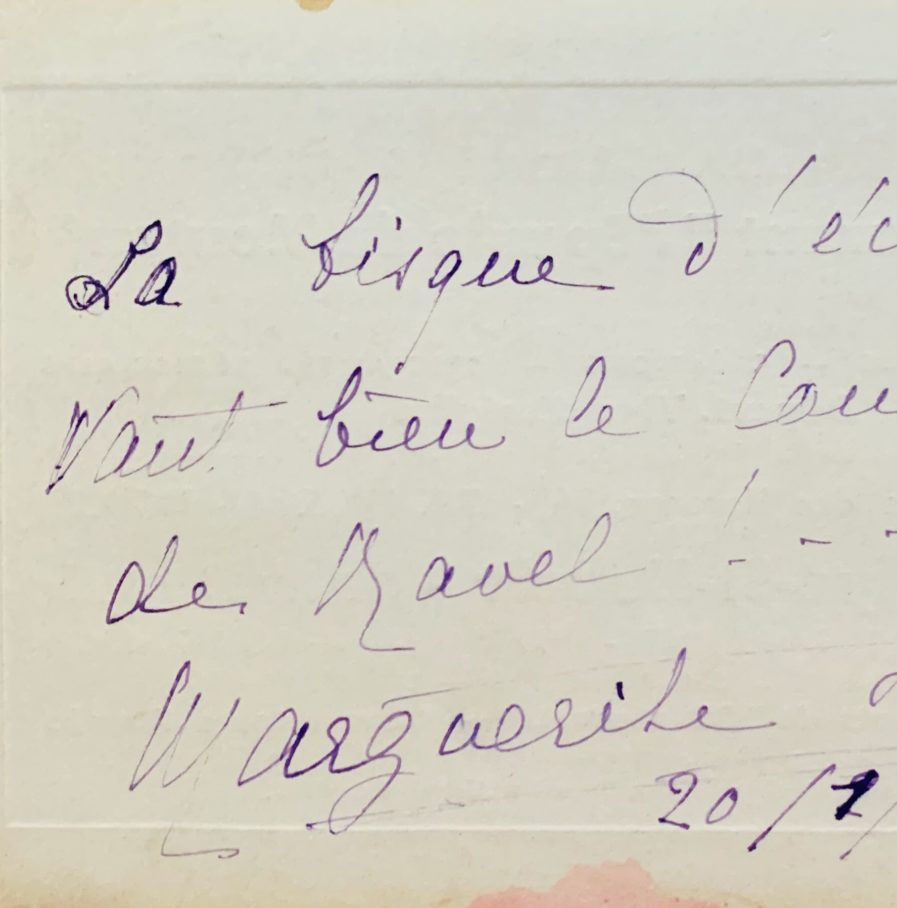 La bisque d'éc
Vaut bien le Cou
de Ravel ! - -
Marguerite
20/1/